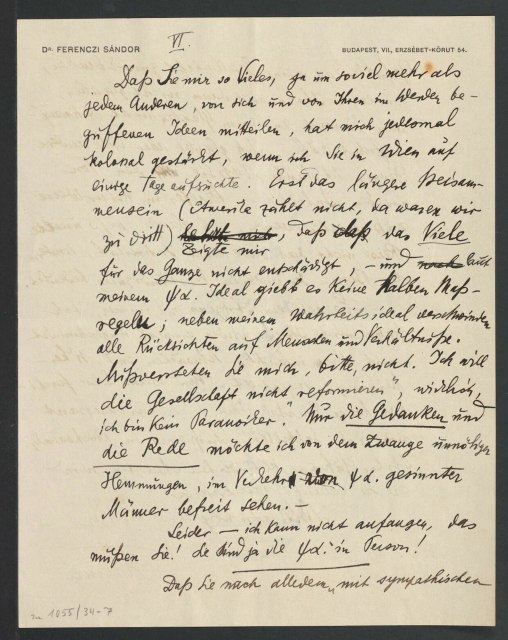 Dr. FERENCZI SÁNDOR
VI.
BUDAPEST, VII., ERZSÉBET-KÖRUT 54.
Daß Sie mir so Vieles, ja um soviel mehr als
jedem Anderen, von sich und von Ihren im Werden be-
griffenen Ideen mitteilen, hat mich jedesmal
kolossal gestärkt, wenn ich Sie in Wien auf
einige Tage aufsuchte. Erst das längere Beisam-
mensein (Amerika zählt nicht, da waren wir
zu dritt) zeigte mir, daß das Viele
für das Ganze nicht entschädigt, – und laut
meinem ψα. Ideal giebt es keine halben Maß-
regeln; neben meinem Wahrheitsideal verschwinden
alle Rücksichten auf Menschen und Verhältnisse.
Mißverstehen Sie mich, bitte, nicht. Ich will
die Gesellschaft nicht „reformieren“, wirklich,
ich bin kein Paranoiker. Nur die Gedanken und
die Rede möchte ich von dem Zwange unnötiger
Hemmungen, im Verkehr von ψα. gesinnter
Männer befreit sehen. –
Leider – ich kann nicht anfangen, das
müßen Sie! Sie sind ja die ψα. in Person!
Daß Sie nach alledem „mit sympathischen
zu 1055/34-7